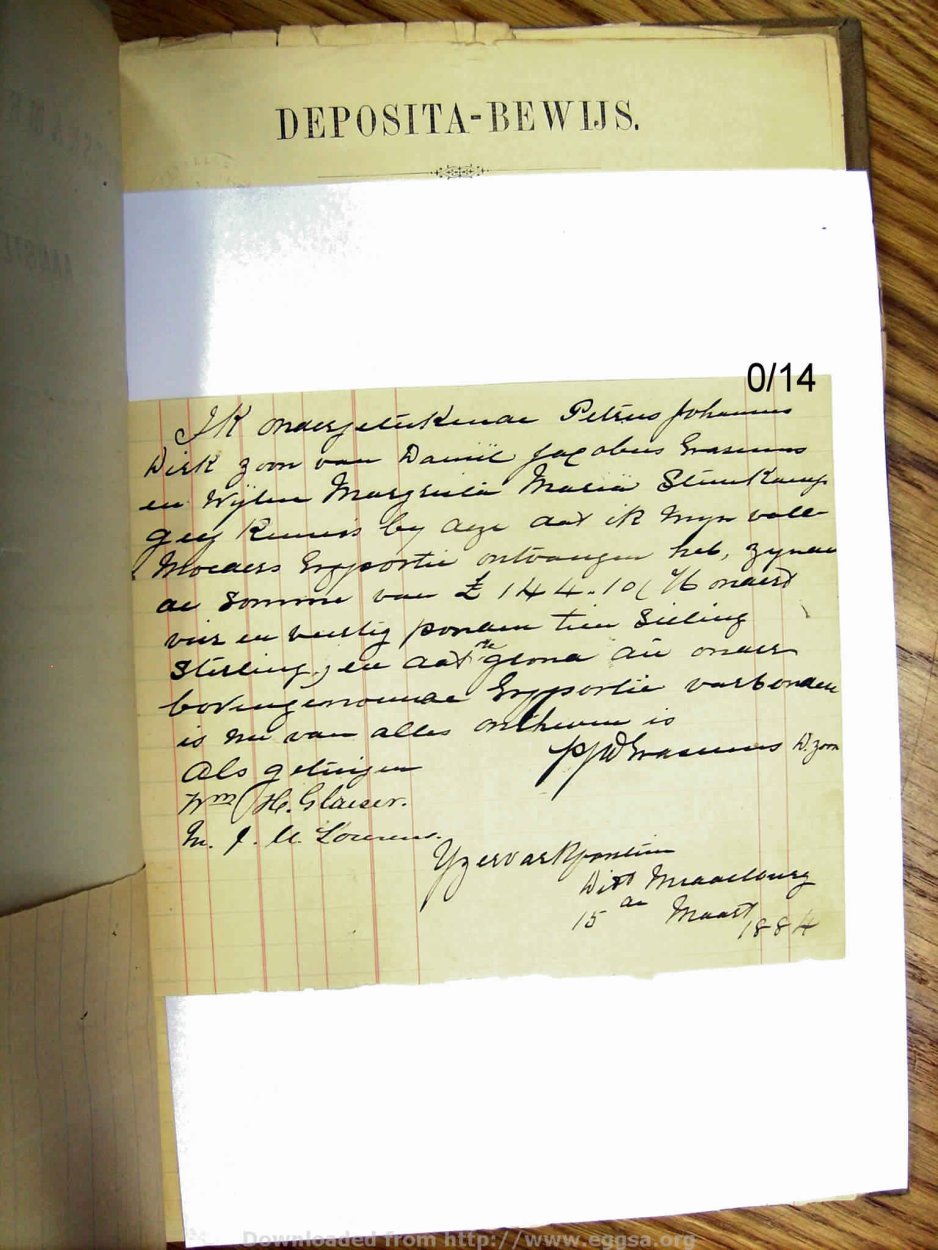 DEPOSITA-BEWIJS.
0/14
Ik ondergetekende Petrus Johannes
Dirk zoon van Daniel Jacobus Erasmus
en Wylen Margrieta Maria Steenkamp
geef kennis by deze dat ik myn volle
Moeders Erfportie ontvangen heb, zynde
de Somme van £ 144.10/ ondert
vier en veertig ponden tien Sieling
Sterling; en dat de grond die onder
bovengenoemde Erfportie verbonden
is nu van alles ontheven is
PJD Erasmus D. zoon
Als getuigen
Wm H. Glaeser.
M. J. U. Lourens.
Yzervarkfontein
Dist Middelburg
15 de Maart 1884
Downloaded from http://www.eggsa.org